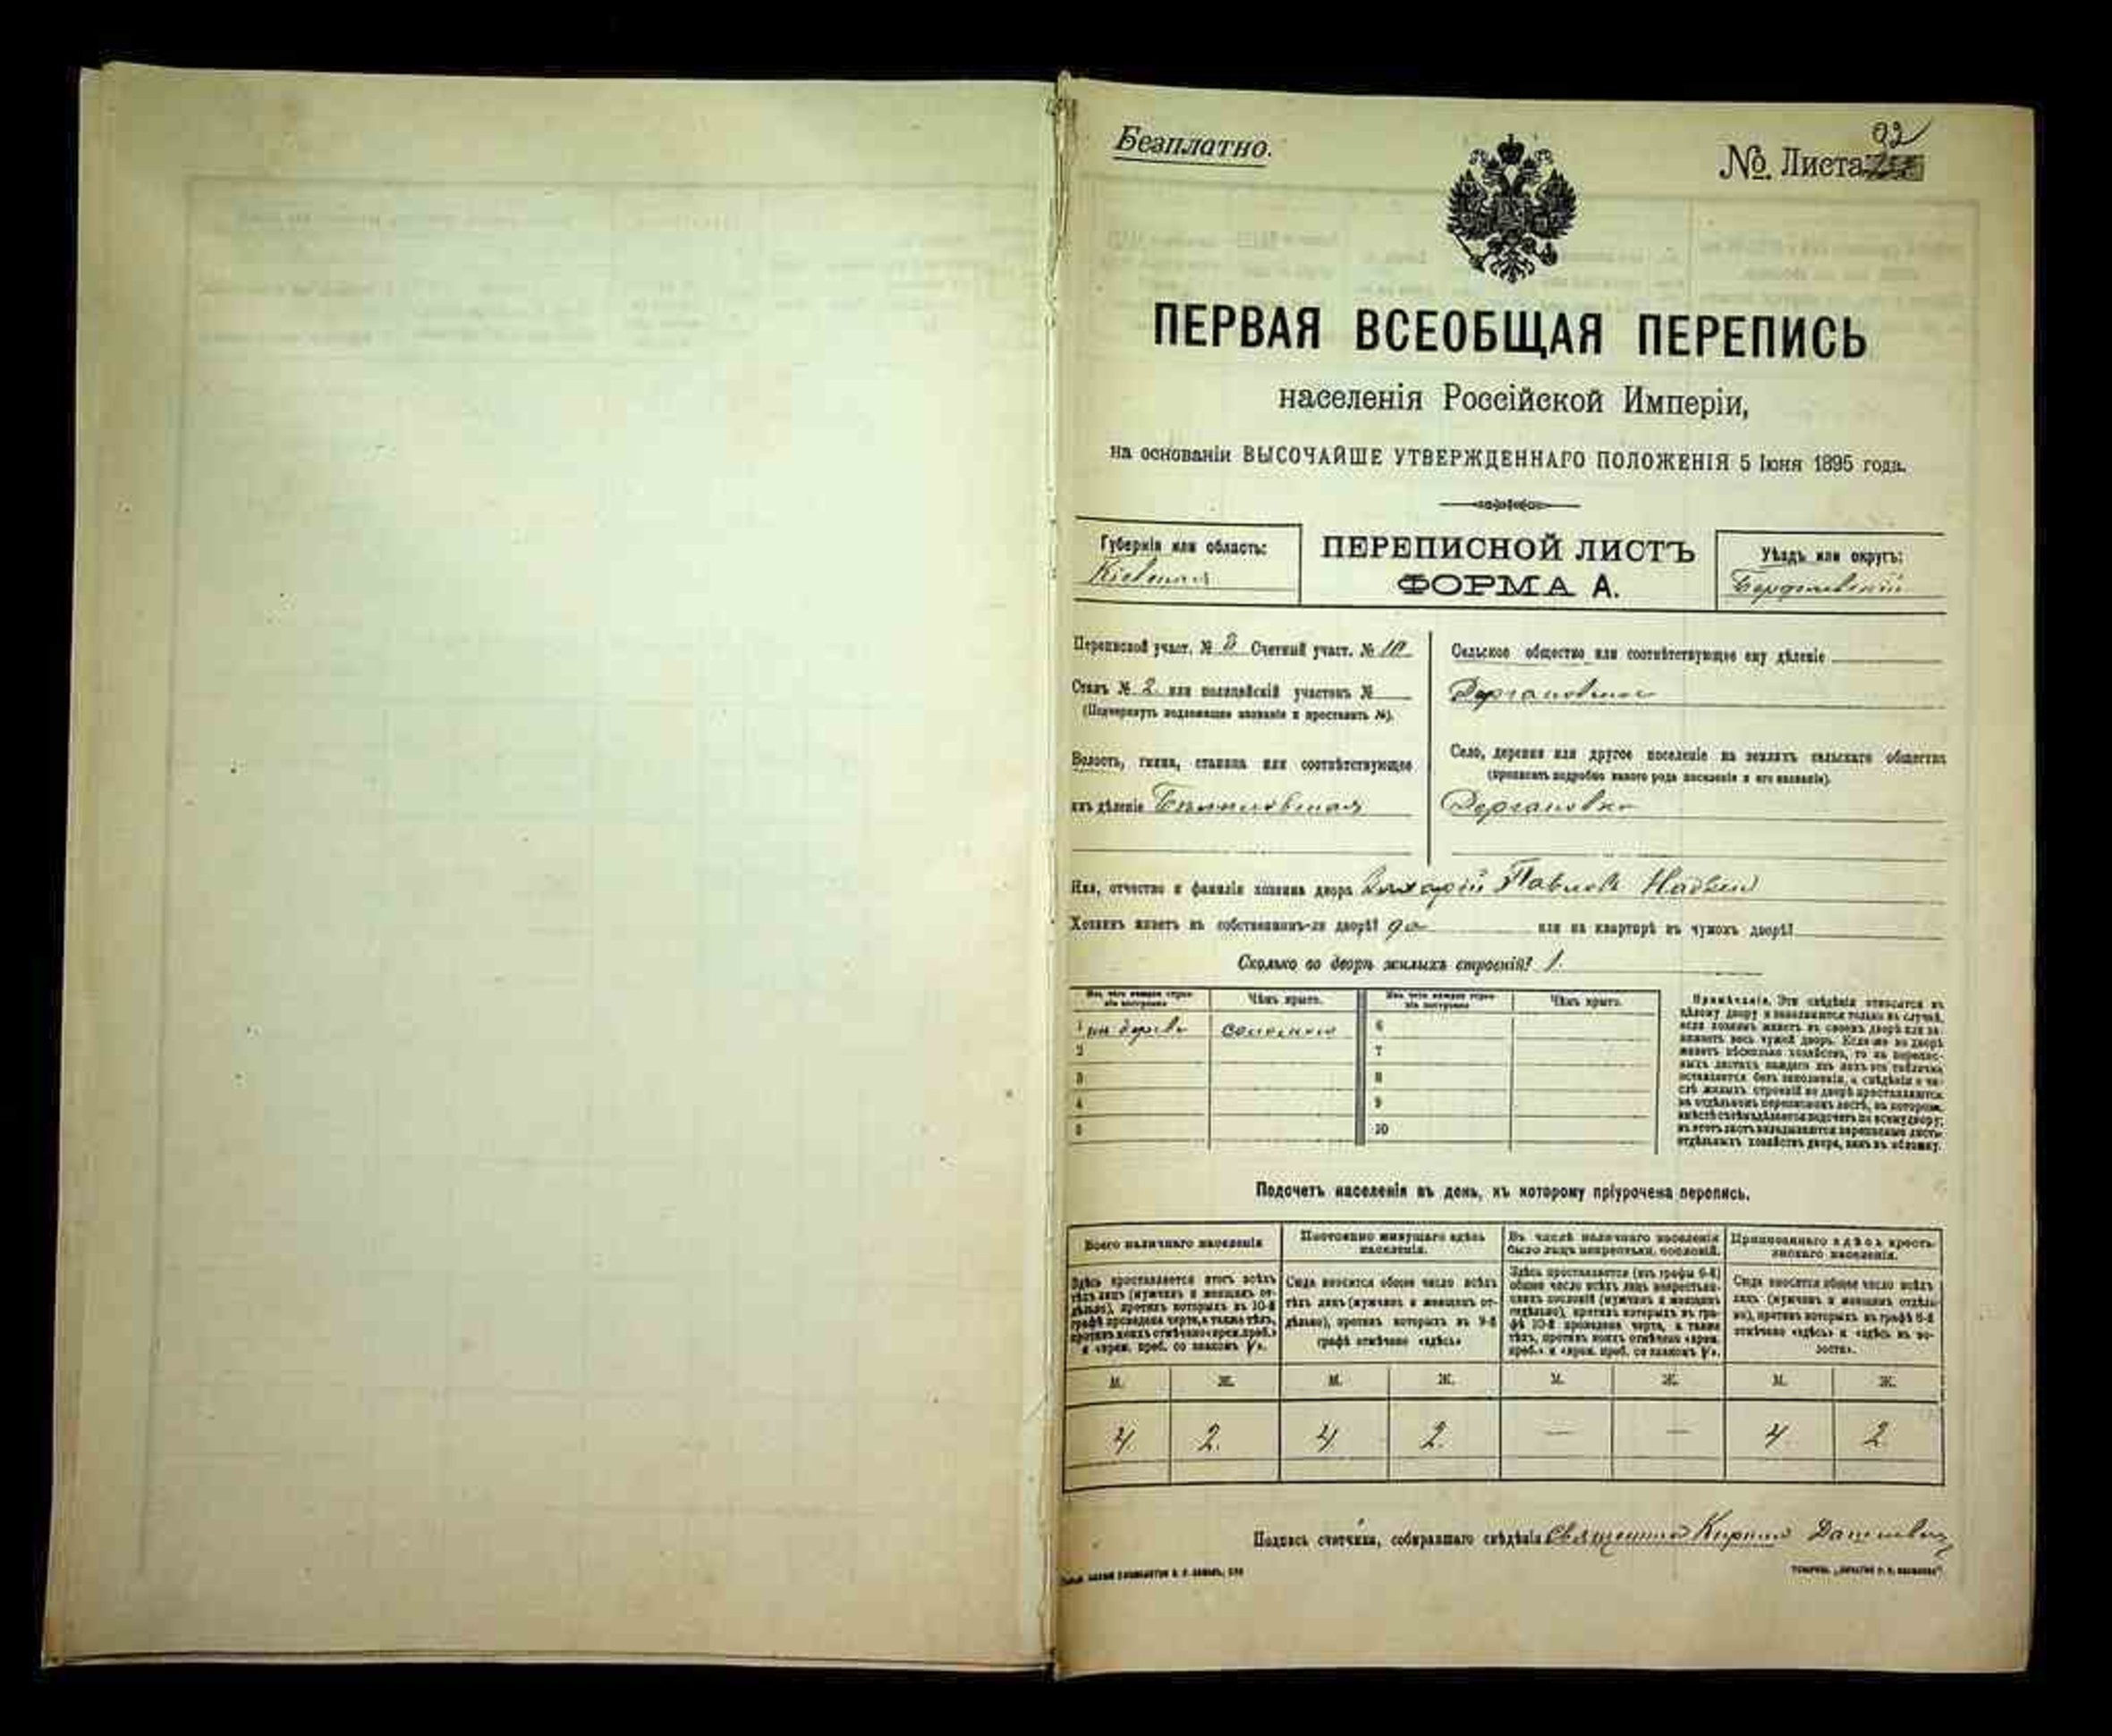 Безплатно.
№ Листа 92
ПЕРВАЯ ВСЕОБЩАЯ ПЕРЕПИСЬ
населенія Россійской Имперіи,
на основаніи ВЫСОЧАЙШЕ УТВЕРЖДЕННАГО ПОЛОЖЕНІЯ 5 Іюня 1895 года.
Губернія или область:
Кіевская
ПЕРЕПИСНОЙ ЛИСТЪ
ФОРМА А.
Уѣздъ или округъ:
Бердичевскій
Переписной участ. № 3 Счетный участ. № 10
Станъ № 2 или полицейскій участокъ №
(Подчеркнуть подлежащее названіе и проставить №).
Волость, гмина, станица или соотвѣтствующее
имъ дѣленіе
Сельское общество или соотвѣтствующее ему дѣленіе
Дергановское
Село, деревня или другое поселеніе на земляхъ сельскаго общества
(прописать подробно какого рода поселеніе и его названіе).
Дергановка
Имя, отчество и фамилія хозяина двора Павловъ
Хозяинъ живетъ въ собственномъ-ли дворѣ? да или на квартирѣ въ чужомъ дворѣ?
Сколько во дворѣ жилыхъ строеній? 1.
Изъ чего каждое строеніе построено
Чѣмъ крыто.
Изъ чего каждое строеніе построено
Чѣмъ крыто.
1 изъ дерева соломою 6
2 7
3 8
4 9
5 10
Примѣчаніе. Эти свѣдѣнія относятся къ
цѣлому двору и заполняются только въ случаѣ,
если хозяинъ живетъ въ своемъ дворѣ или занимаетъ
весь чужой дворъ. Если-же во дворѣ
живетъ нѣсколько хозяйствъ, то на переписныхъ
листахъ каждаго изъ нихъ эта табличка
оставляется безъ заполненія, а свѣдѣнія о числѣ
жилыхъ строеній во дворѣ проставляются
на отдѣльномъ переписномъ листѣ, на которомъ
вмѣстѣ съ тѣмъ дѣлается подсчетъ по всему двору;
въ этотъ листъ вкладываются переписные листы
отдѣльныхъ хозяйствъ двора, какъ въ обложку.
Подсчетъ населенія въ день, къ которому пріурочена перепись.
Всего наличнаго населенія
Здѣсь проставляется итогъ всѣхъ
тѣхъ лицъ (мужчинъ и женщинъ отдѣльно),
противъ которыхъ въ 10-й
графѣ проведена черта, а также тѣхъ,
противъ коихъ отмѣчено «врем. преб.»
и «врем. преб. со знакомъ V».
Постоянно живущаго здѣсь
населенія.
Сюда вносится общее число всѣхъ
тѣхъ лицъ (мужчинъ и женщинъ отдѣльно),
противъ которыхъ въ 9-й
графѣ отмѣчено «здѣсь»
Въ числѣ наличнаго населенія
было лицъ некрестьян. сословій.
Здѣсь проставляется (изъ графы 6-й)
общее число всѣхъ лицъ некрестьянскихъ
сословій (мужчинъ и женщинъ
отдѣльно), противъ которыхъ въ графѣ
10-й проведена черта, а также
тѣхъ, противъ коихъ отмѣчено «врем.
преб.» и «врем. преб. со знакомъ V».
Приписаннаго здѣсь крестьянскаго
населенія.
Сюда вносится общее число всѣхъ
лицъ (мужчинъ и женщинъ отдѣльно),
противъ которыхъ въ графѣ 8-й
отмѣчено «здѣсь» и «здѣсь въ волости».
М. Ж. М. Ж. М. Ж. М. Ж.
4 2. 4 2. — — 4 2
Подпись счетчика, собиравшаго свѣдѣнія Священникъ Кириллъ